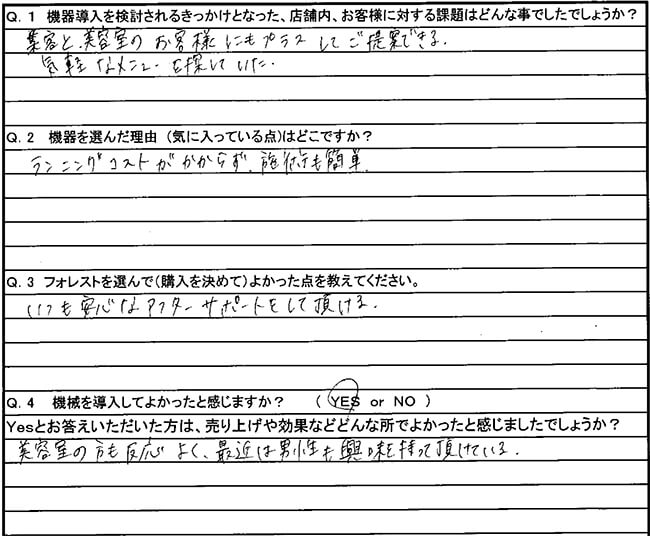 Q. 1 機器導入を検討されるきっかけとなった、店舗内、お客様に対する課題はどんな事でしたでしょうか?
集客と、美容室のお客様にもプラスしてご提案できる、
気軽なメニューを探していた.
Q. 2 機器を選んだ理由 (気に入っている点)はどこですか?
ランニングコストがかからず、施術も簡単.
Q. 3 フォレストを選んで(購入を決めて)よかった点を教えてください。
いつも安心なアフターサポートをして頂ける.
Q. 4 機械を導入してよかったと感じますか? ( YES or NO )
Yesとお答えいただいた方は、売り上げや効果などどんな所でよかったと感じましたでしょうか?
美容室の方も反応よく、最近は男性も興味を持って頂けている.